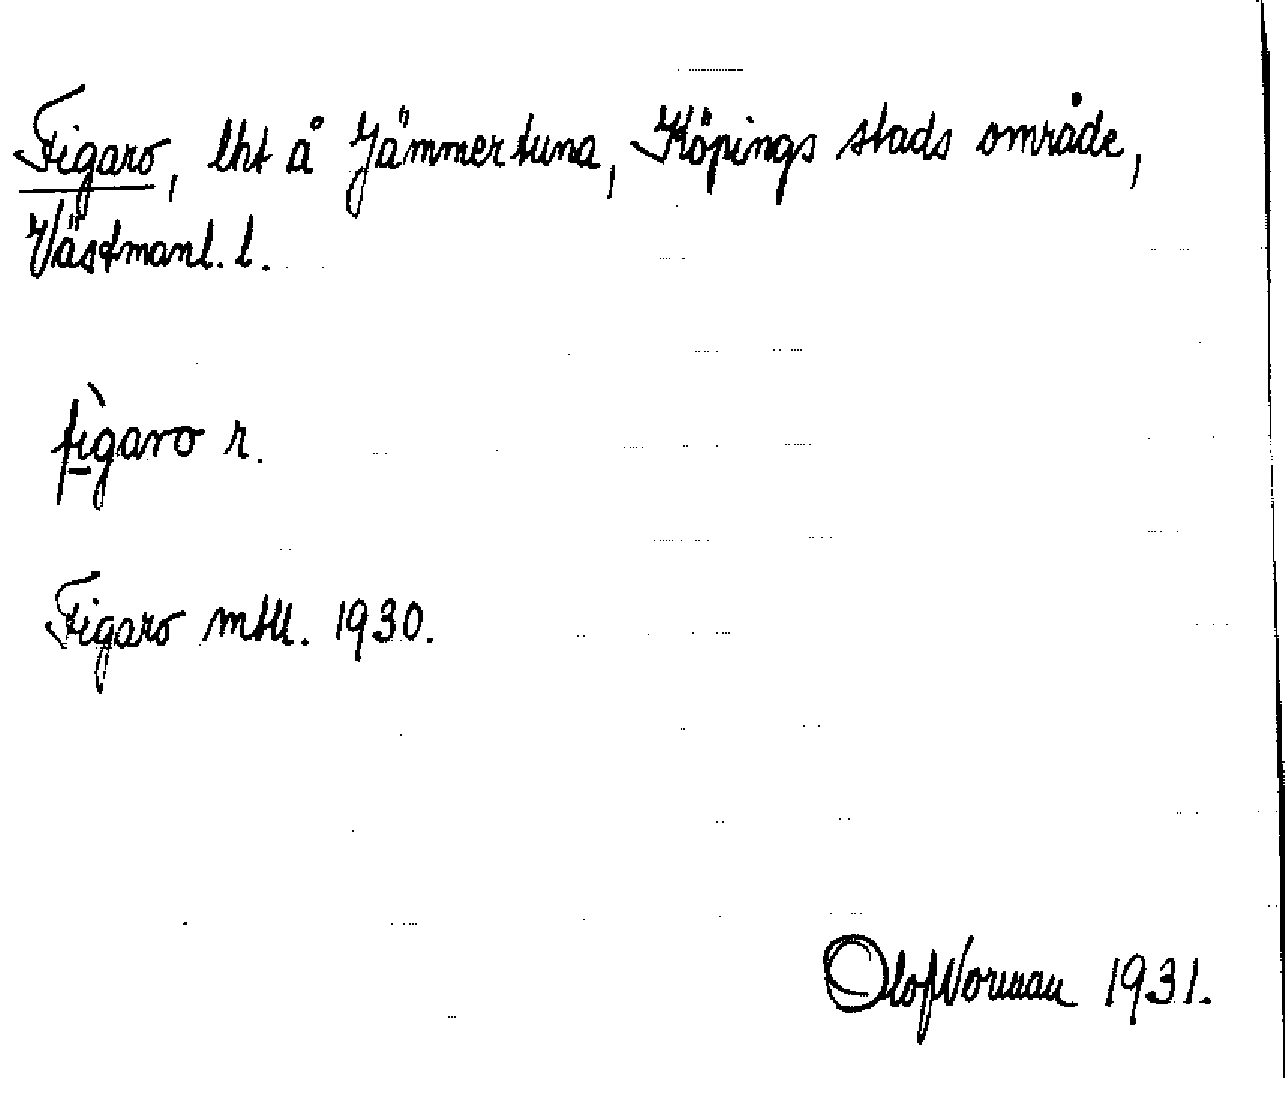 Figaro, lht å Jämmertuna, Köpings stads område,
Västmanl. l.
fìgaro r.
Figaro mtll. 1930.
Olof Norman 1931.